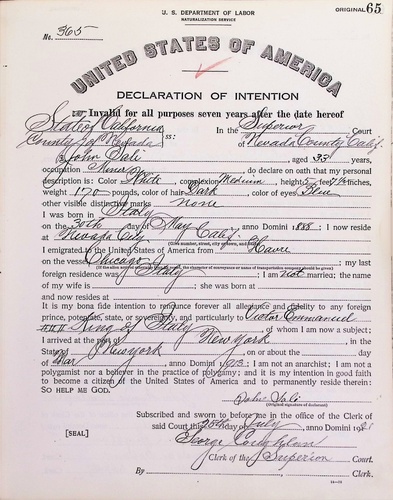 U. S. DEPARTMENT OF LABOR
NATURALIZATION SERVICE
ORIGINAL 65
No. 365
UNITED STATES OF AMERICA
DECLARATION OF INTENTION
Invalid for all purposes seven years after the date hereof
State of California
County of Nevada ss: In the Superior Court
of Nevada County Calif.
I, John Dali, aged 33 years,
occupation Miner, do declare on oath that my personal
description is: Color White, complexion Medium, height 5 feet 7½ inches,
weight 170 pounds, color of hair Dark, color of eyes Blue
other visible distinctive marks none
I was born in Italy
on the 30th day of May, anno Domini 1888; I now reside
at Nevada City Calif.
(Give number, street, city or town, and State.)
I emigrated to the United States of America from Havre
on the vessel Chicago; my last
(If the alien arrived otherwise than by vessel, the character of conveyance or name of transportation company should be given.)
foreign residence was Italy; I am not married; the name
of my wife is; she was born at
and now resides at
It is my bona fide intention to renounce forever all allegiance and fidelity to any foreign
prince, potentate, state, or sovereignty, and particularly to Victor Emmanuel
III King of Italy, of whom I am now a subject;
I arrived at the port of New York, in the
State of New York, on or about the day
of Mar, anno Domini 1913; I am not an anarchist; I am not a
polygamist nor a believer in the practice of polygamy; and it is my intention in good faith
to become a citizen of the United States of America and to permanently reside therein:
SO HELP ME GOD.
John Dali
(Original signature of declarant)
Subscribed and sworn to before me in the office of the Clerk of
said Court this 28th day of July, anno Domini 1921
[SEAL]
George Coughlan
Clerk of the Superior Court.
By, Clerk.